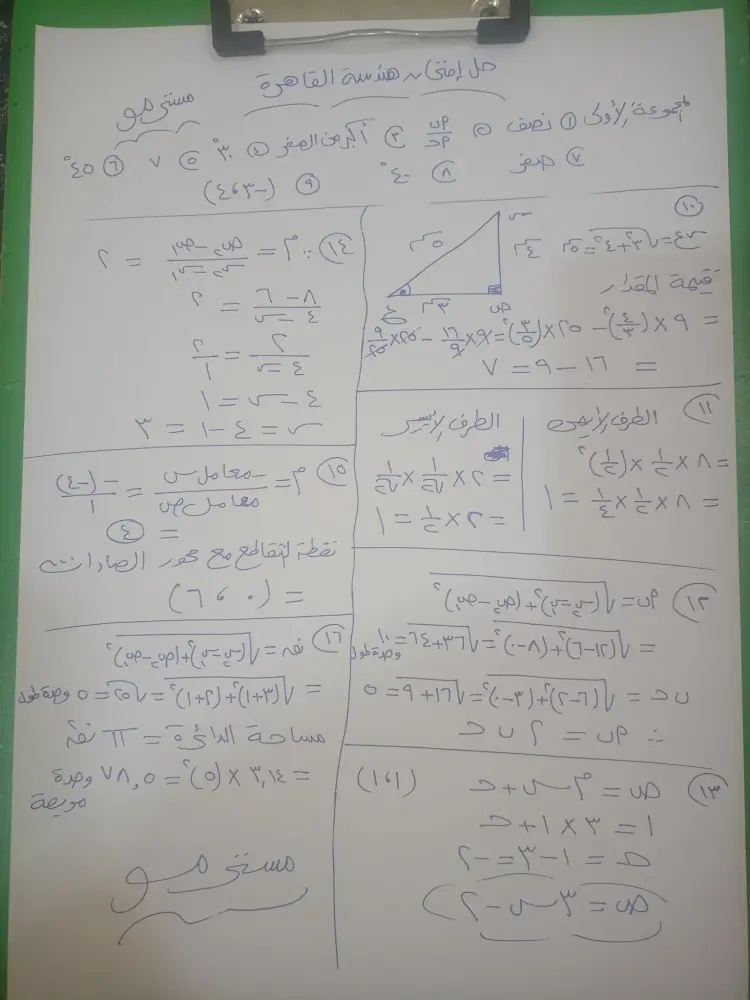 حل إمتحان هندسة القاهرة
مستر مو
المجموعة الأولى ① نصف ② أب/أحـ ③ أكبر من الصفر ④ ٣٠° ⑤ ٧ ⑥ ٤٥°
⑦ صفر ⑧ ٤٠° ⑨ (-٣، ٤)
⑩
س
٥سم
٤سم
٣سم
ص
ع
س ع = √(٣² + ٤²) = ٥سم
قيمة المقدار
= ٩ × (٤/٣)² - ٢٥ × (٣/٥)² = ٩ × ١٦/٩ - ٢٥ × ٩/٢٥
= ١٦ - ٩ = ٧
⑪ الطرف الأيمن
= ٨ × ١/٢ × (١/٢)²
= ٨ × ١/٢ × ١/٤ = ١
الطرف الأيسر
= ٢ × ١/√٢ × ١/√٢
= ٢ × ١/٢ = ١
⑫ أب = √((س٢ - س١)² + (ص٢ - ص١)²)
= √((١٢-٦)² + (٨-٠)²) = √(٣٦+٦٤) = ١٠ وحدة طول
ب حـ = √((٦-٢)² + (٣-٠)²) = √(١٦+٩) = ٥
∴ أب = ٢ ب حـ
⑬ ص = م س + حـ (١،١)
١ = ٣ × ١ + حـ
حـ = ١ - ٣ = -٢
ص = ٣س - ٢
⑭ ∵ م = (ص٢ - ص١)/(س٢ - س١) = ٢
(٨ - ٦)/(٤ - س) = ٢
٢/(٤ - س) = ٢/١
٤ - س = ١
س = ٤ - ١ = ٣
⑮ م = -معامل س/معامل ص = -(-٤)/١
= ④
نقطة التقاطع مع محور الصادات
= (٠، ٦)
⑯ نق = √((س٢-س١)² + (ص٢-ص١)²)
= √((٣+١)² + (٢+١)²) = √٢٥ = ٥ وحدة طول
مساحة الدائرة = π نق²
= ٣,١٤ × (٥)² = ٧٨,٥ وحدة
مربعة
مستر مو